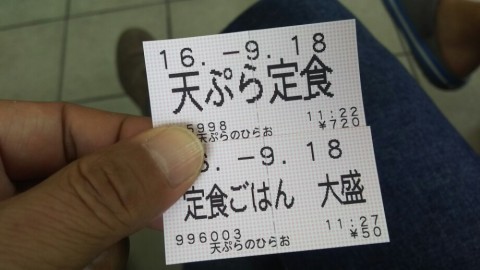 16.-9.18
天ぷら定食
5998 11:22
天ぷらのひらお ¥720
6.-9.18
定食ごはん 大盛
996003 11:27
天ぷらのひらお ¥50